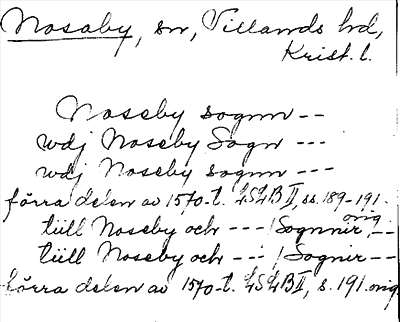 Nosaby, sn, Villands hd,
Krist. l.
Noseby sognn --
wdj Noseby Sogn ---
wdj Noseby sognn ---
förra delen av 1570-t. LSLB II, ss. 189-191.
orig.
tüll Noseby och --- / Sognnir, --
tüll Noseby och --- / Sognir --
förra delen av 1570-t. LSLB II, s. 191. orig.